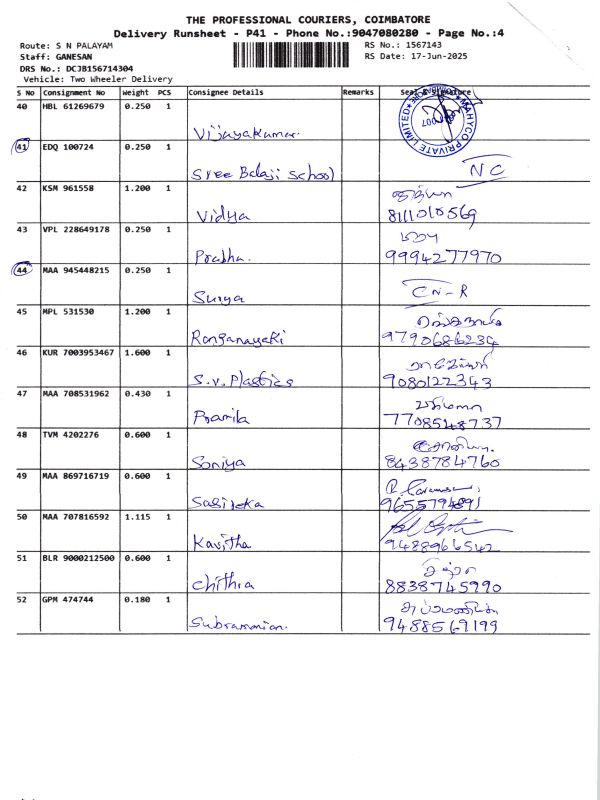 THE PROFESSIONAL COURIERS, COIMBATORE
Delivery Runsheet - P41 - Phone No.:9047080280 - Page No.:4
Route: S N PALAYAM
RS No.: 1567143
Staff: GANESAN
RS Date: 17-Jun-2025
DRS No.: DCJB156714304
Vehicle: Two Wheeler Delivery
S No Consignment No Weight PCS Consignee Details Remarks Seal & Signature
40 HBL 61269679 0.250 1
MAHYCO PRIVATE LIMITED
Vijayakumar.
41 EDQ 100724 0.250 1
Sree Balaji School NC
42 KSM 961558 1.200 1
Vidya 8111010569
43 VPL 228649178 0.250 1
Prabha. 9994277970
44 MAA 945448215 0.250 1
Surya CN-R
45 MPL 531530 1.200 1
Ranganayaki 9790686234
46 KUR 7003953467 1.600 1
S.V. Plastics 9080122343
47 MAA 708531962 0.430 1
Pramila 7708548737
48 TVM 4202276 0.600 1
Soniya 8438784760
49 MAA 869716719 0.600 1
9655794891
50 MAA 707816592 1.115 1
Kavitha 9488966542
51 BLR 9000212500 0.600 1
Chithra 8838745990
52 GPM 474744 0.180 1
Subramanian. 9488569199